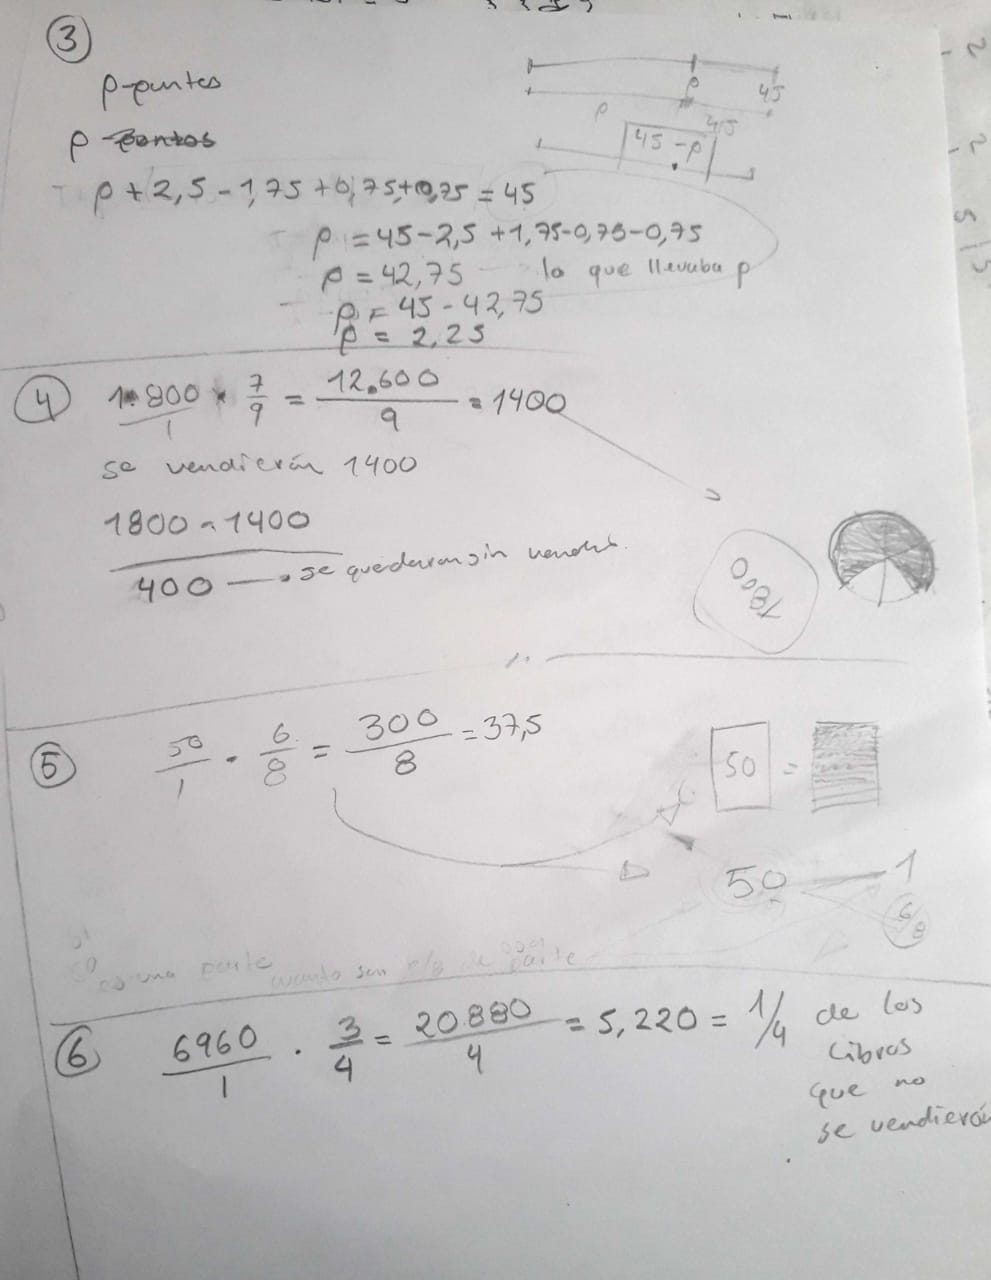 3
p-puntos
p
p
45
p
45
45 - p
p + 2,5 - 1,75 + 0,75 + 0,75 = 45
p = 45 - 2,5 + 1,75 - 0,75 - 0,75
p = 42,75 lo que llevaba p
p = 45 - 42,75
p = 2,25
4
1.800/1 × 7/9 = 12.600/9 = 1400
se vendierón 1400
1800 - 1400
400 se quedaron sin vender.
1800
5
50/1 · 6/8 = 300/8 = 37,5
50 =
50 — 1
6/8
es una parte cuanto son 6/8 de parte
6
6960/1 · 3/4 = 20.880/4 = 5,220 = 1/4 de los
libros
que no
se vendierón